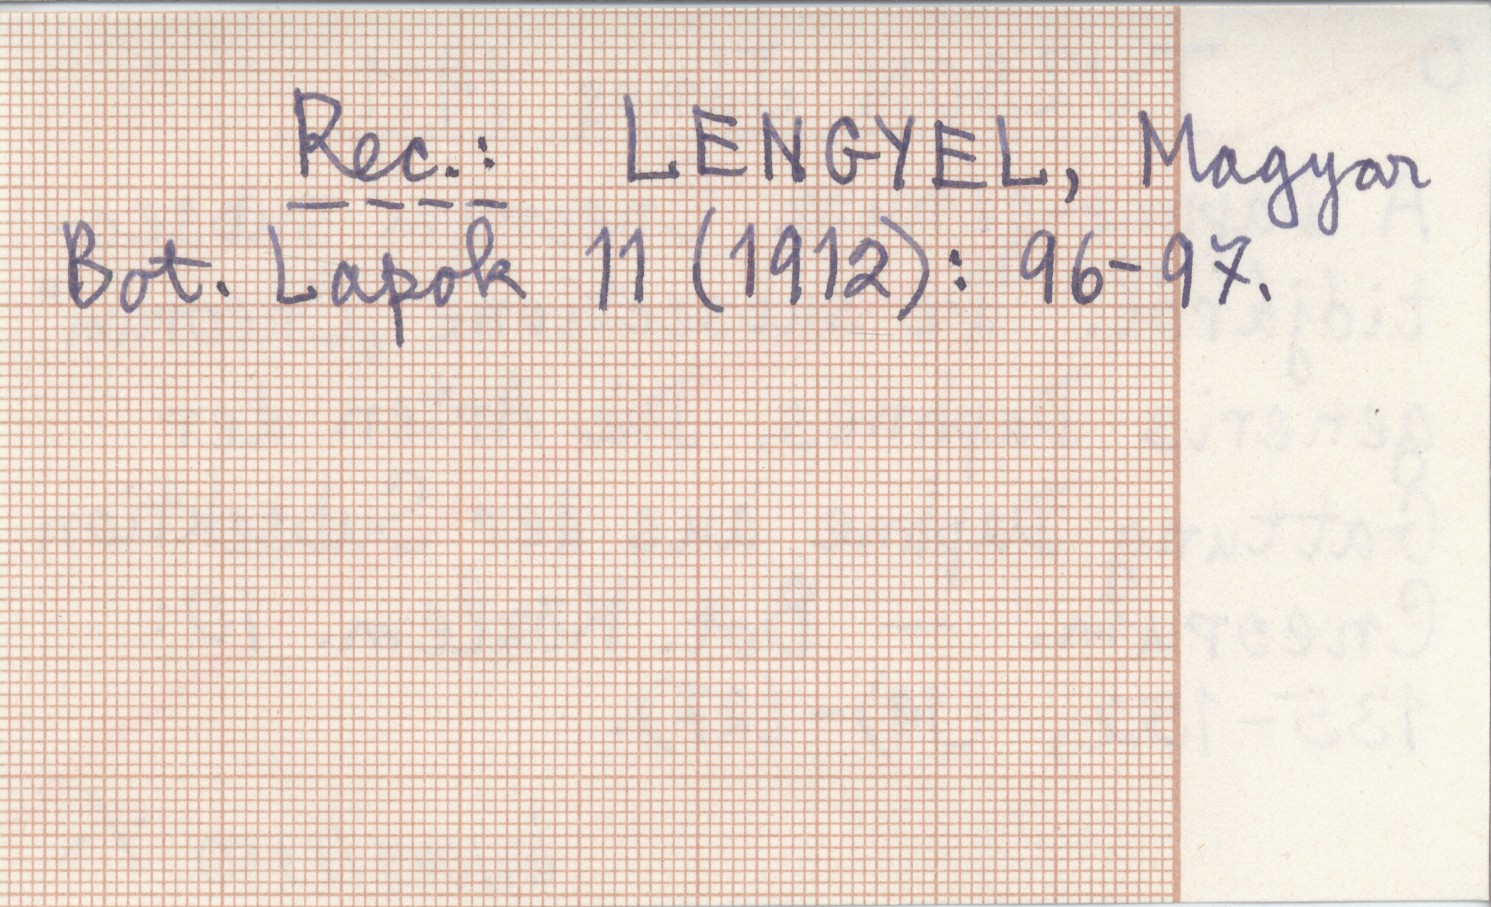 Rec.: LENGYEL, Magyar
Bot. Lapok 11 (1912): 96-97.